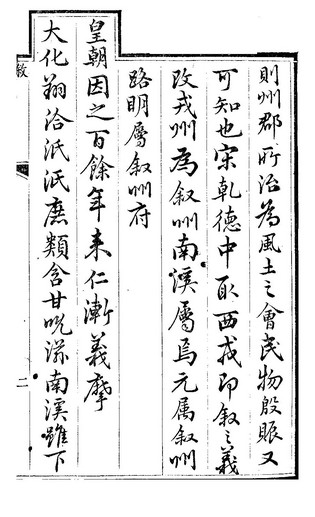 則州郡所治為風土之會民物殷賑又
可知也宋乾德中取西戎即敘之義
改戎州為叙州南溪屬焉元属叙州
路明屬叙州府
皇朝因之百餘年来仁漸義摩
大化翔洽汦汦庶類含甘吮滋南溪雖下
敘
二